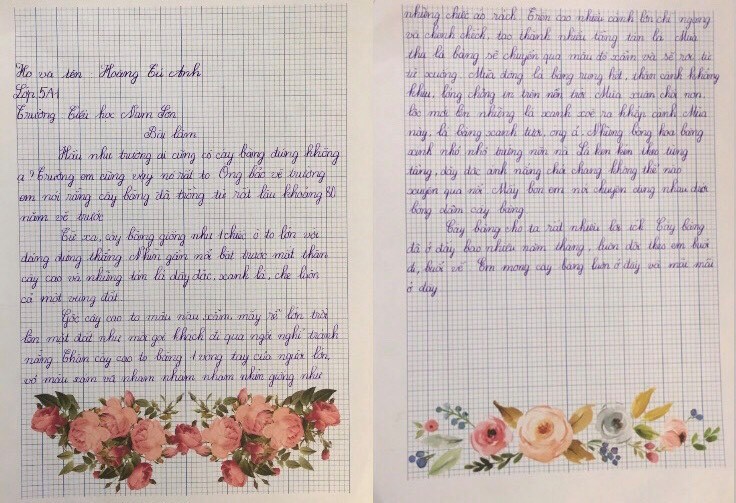 Họ và tên : Hoàng Tú Anh
Lớp 5A1
Trường Tiểu học Nam Sơn
Bài làm
Hầu như trường ai cũng có cây bàng đúng không
ạ ? Trường em cũng vậy nó rất to. Ông bảo vệ trường
em nói rằng cây bàng đã trồng từ rất lâu khoảng 80
năm về trước.
Từ xa, cây bàng giống như 1 chiếc ô to lớn với
dáng đứng thẳng. Nhìn gần nổi bật trước mắt thân
cây cao và những tán lá dày đặc, xanh lá, che luôn
cả một vùng đất.
Gốc cây cao to màu nâu xẩm, mấy rễ lớn trồi
lên mặt đất như mời gọi khách đi qua ngồi nghỉ tránh
nắng. Thân cây cao to bằng 1 vòng tay của người lớn,
vỏ màu xạm và nham nham nham nhìn giống như
những chiếc áo rách. Trên cao nhiều cành lớn chĩ ngang
và chênh chếch, tạo thành nhiều tầng tán lá. Mùa
thu lá bàng sẽ chuyển qua màu đỏ xẩm và sẽ rơi từ
từ xuống. Mùa đông lá bàng rụng hết, thân cành khẳng
khiu, lổng chổng in trên nền trời. Mùa xuân chồi non,
lộc mới lên những lá xanh xoè ra khắp cành. Mùa
này, lá bàng xanh tươi, ong ả. Những bông hoa bàng
xinh nhỏ nhỏ trường nỡn nà. Lá ken ken theo từng
tầng, dày đặc ánh nắng chói chang không thể nào
xuyên qua nổi. Mấy bạn em nói chuyện cùng nhau dưới
bóng dâm cây bàng.
Cây bàng cho ta rất nhiều lợi ích. Cây bàng
đã ở đây bao nhiêu năm tháng, luôn dõi theo em buổi
đi, buổi về. Em mong cây bàng luôn ở đây và mãi mãi
ở đây.